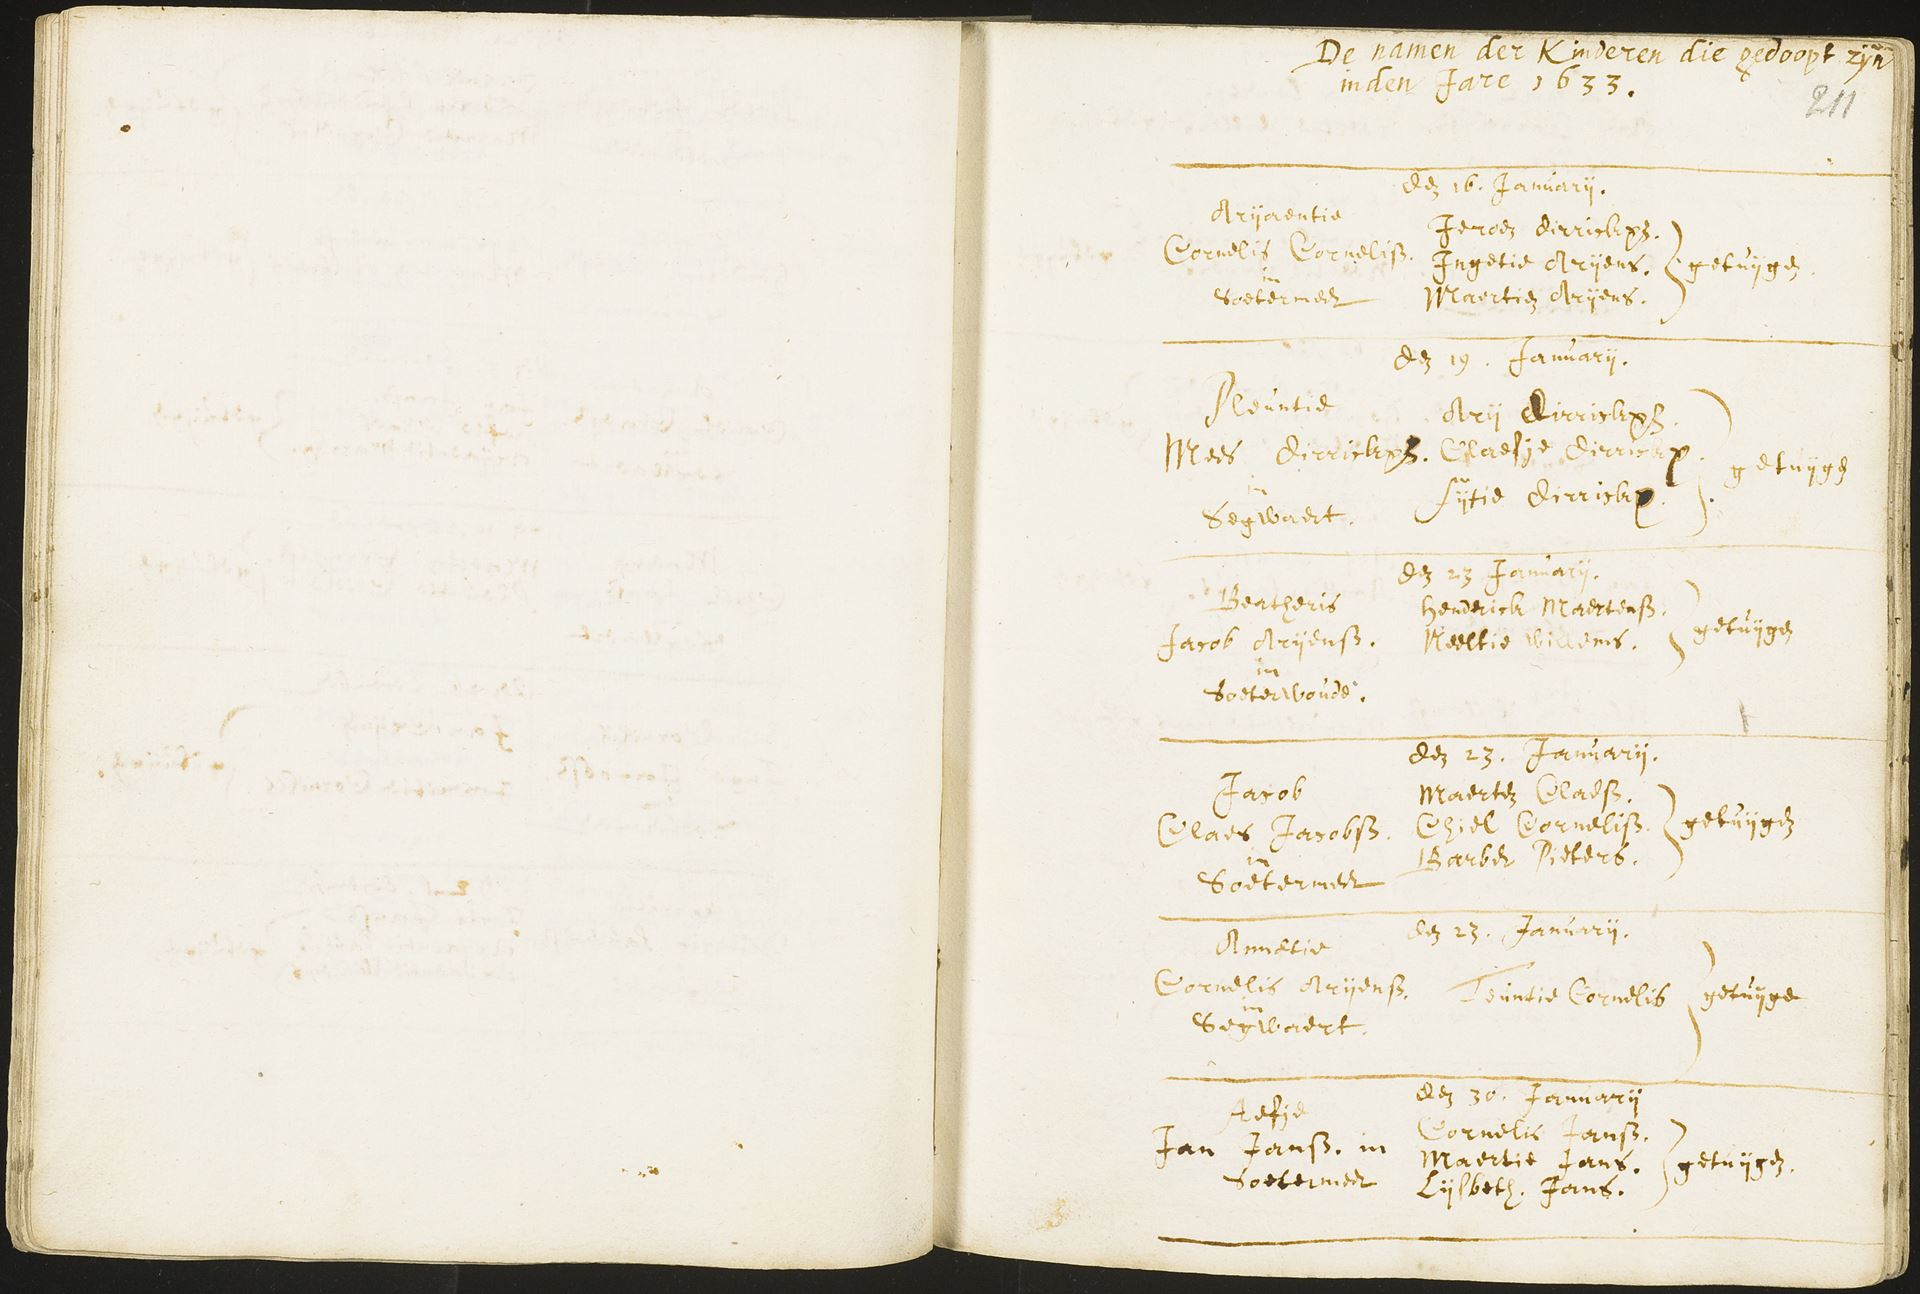 De namen der Kinderen die gedoopt zijn
inden Jare 1633.
211
den 16. Januarij.
Arijaentie
Cornelis Cornelisz.
in
Soetermeer
Jeroen Dirricksz.
Ingetie Arijens.
Maertien Arijens.
getuijgen.
den 19. Januarij.
Pleuntie
Mees Dirricksz.
in
Segwaert.
Arij Dirricksz.
Claesje Dirricks.
Fijtie Dirricks.
getuijgen
den 23 Januarij.
Beatheris
Jacob Arijensz.
in
Soeterwoude.
Henderick Maertensz.
Neeltie Willems.
getuijgen
den 23. Januarij.
Jacob
Claes Jacobsz.
in
Soetermeer
Maerten Claesz.
Chiel Cornelisz.
Barber Pieters.
getuijgen
den 23. Januarij.
Annetie
Cornelis Arijensz.
in
Segwaert.
Teuntie Cornelis
getuijge
den 30. Januarij
Aefje
Jan Jansz. in
Soetermeer
Cornelis Jansz.
Maertie Jans.
Lijsbeth. Jans.
getuijgen.